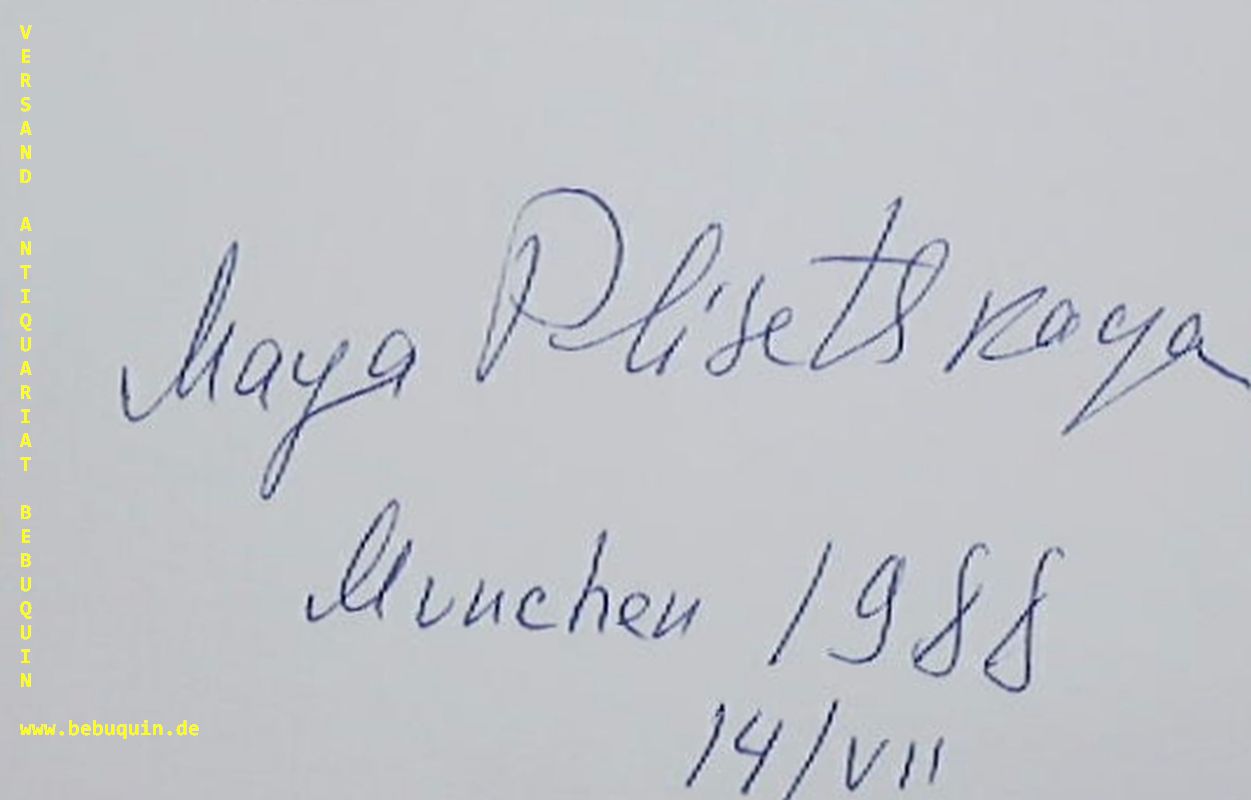 VERSAND ANTIQUARIAT BEBUQUIN
www.bebuquin.de
Maya Plisetskaya
Munchen 1988
14/VII